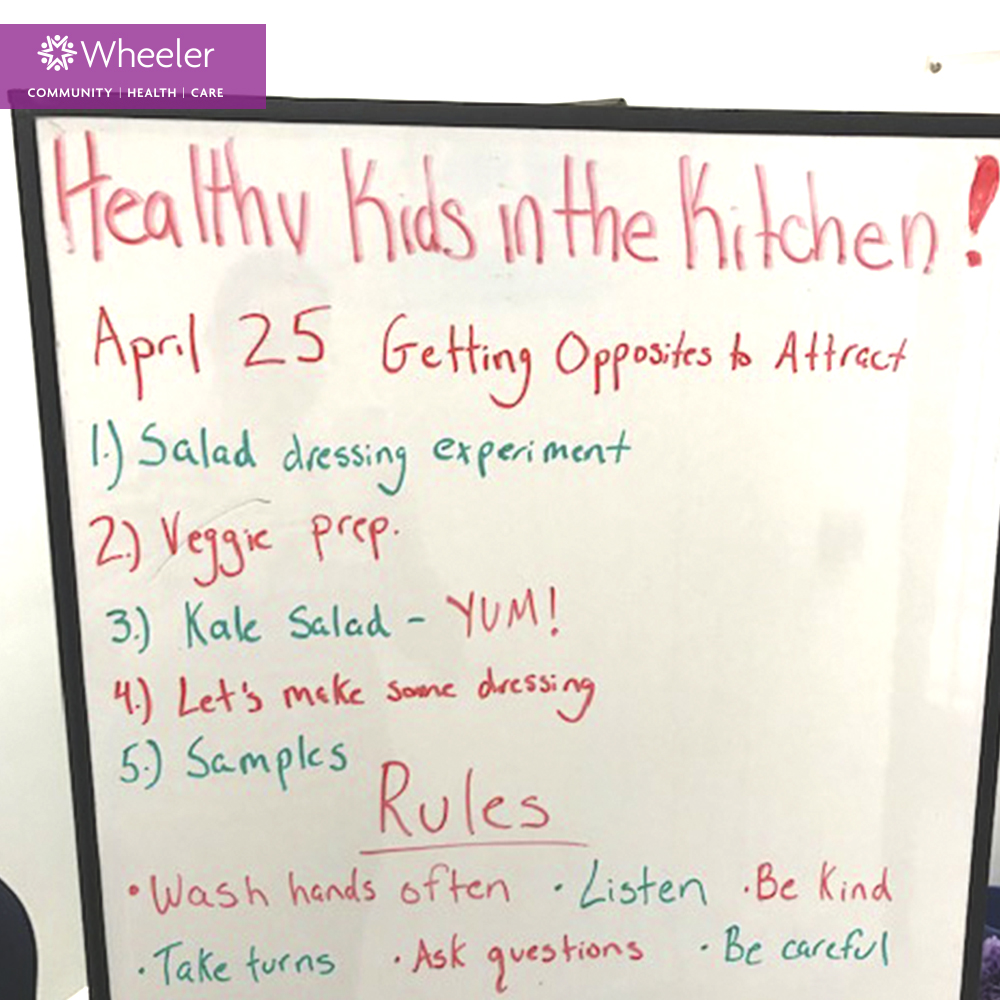 Wheeler
COMMUNITY | HEALTH | CARE
Healthy Kids in the Kitchen!
April 25 Getting Opposites to Attract
1.) Salad dressing experiment
2.) Veggie prep.
3.) Kale Salad - YUM!
4.) Let's make some dressing
5.) Samples
Rules
• Wash hands often • Listen • Be Kind
• Take turns • Ask questions • Be careful